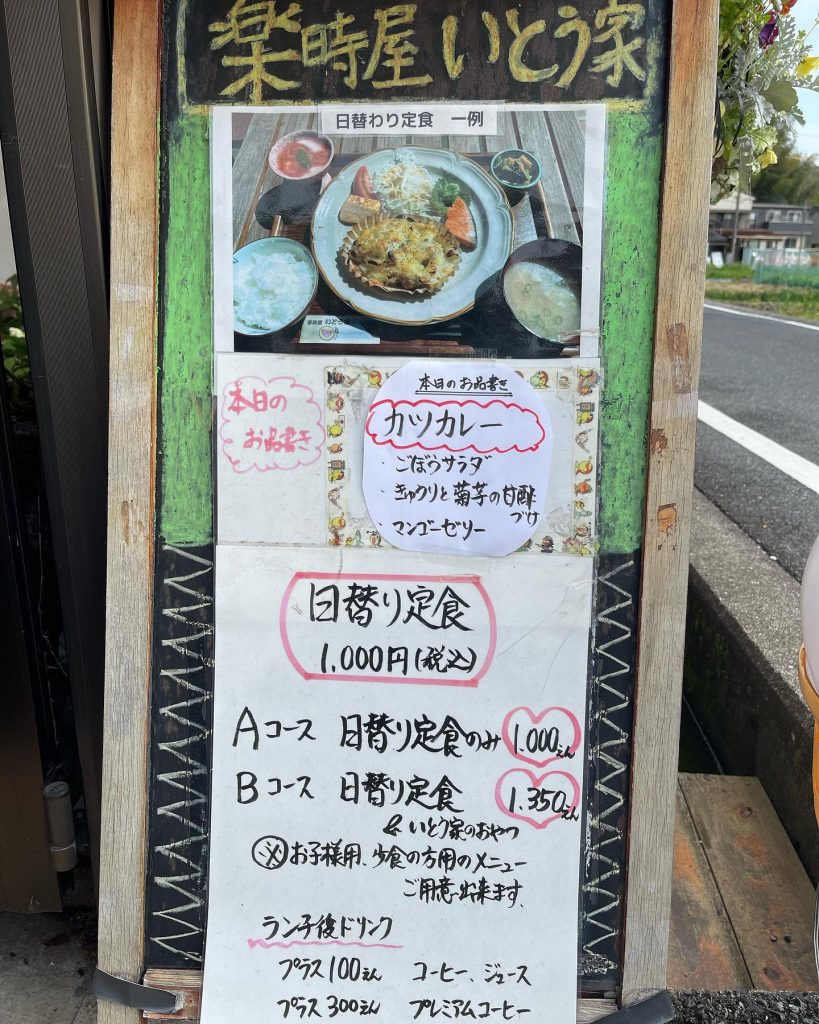 楽時屋 いとう家
日替わり定食 一例
いとう家
本日の
お品書き
本日のお品書き
カツカレー
・ごぼうサラダ
・きゅうりと菊芋の甘酢
づけ
・マンゴーゼリー
日替り定食
1.000円(税込)
Aコース 日替り定食のみ 1.000えん
Bコース 日替り定食 1.350えん
& いとう家のおやつ
㊟お子様用、少食の方用のメニュー
ご用意出来ます。
ランチ後ドリンク
プラス100えん コーヒー、ジュース
プラス300えん プレミアムコーヒー